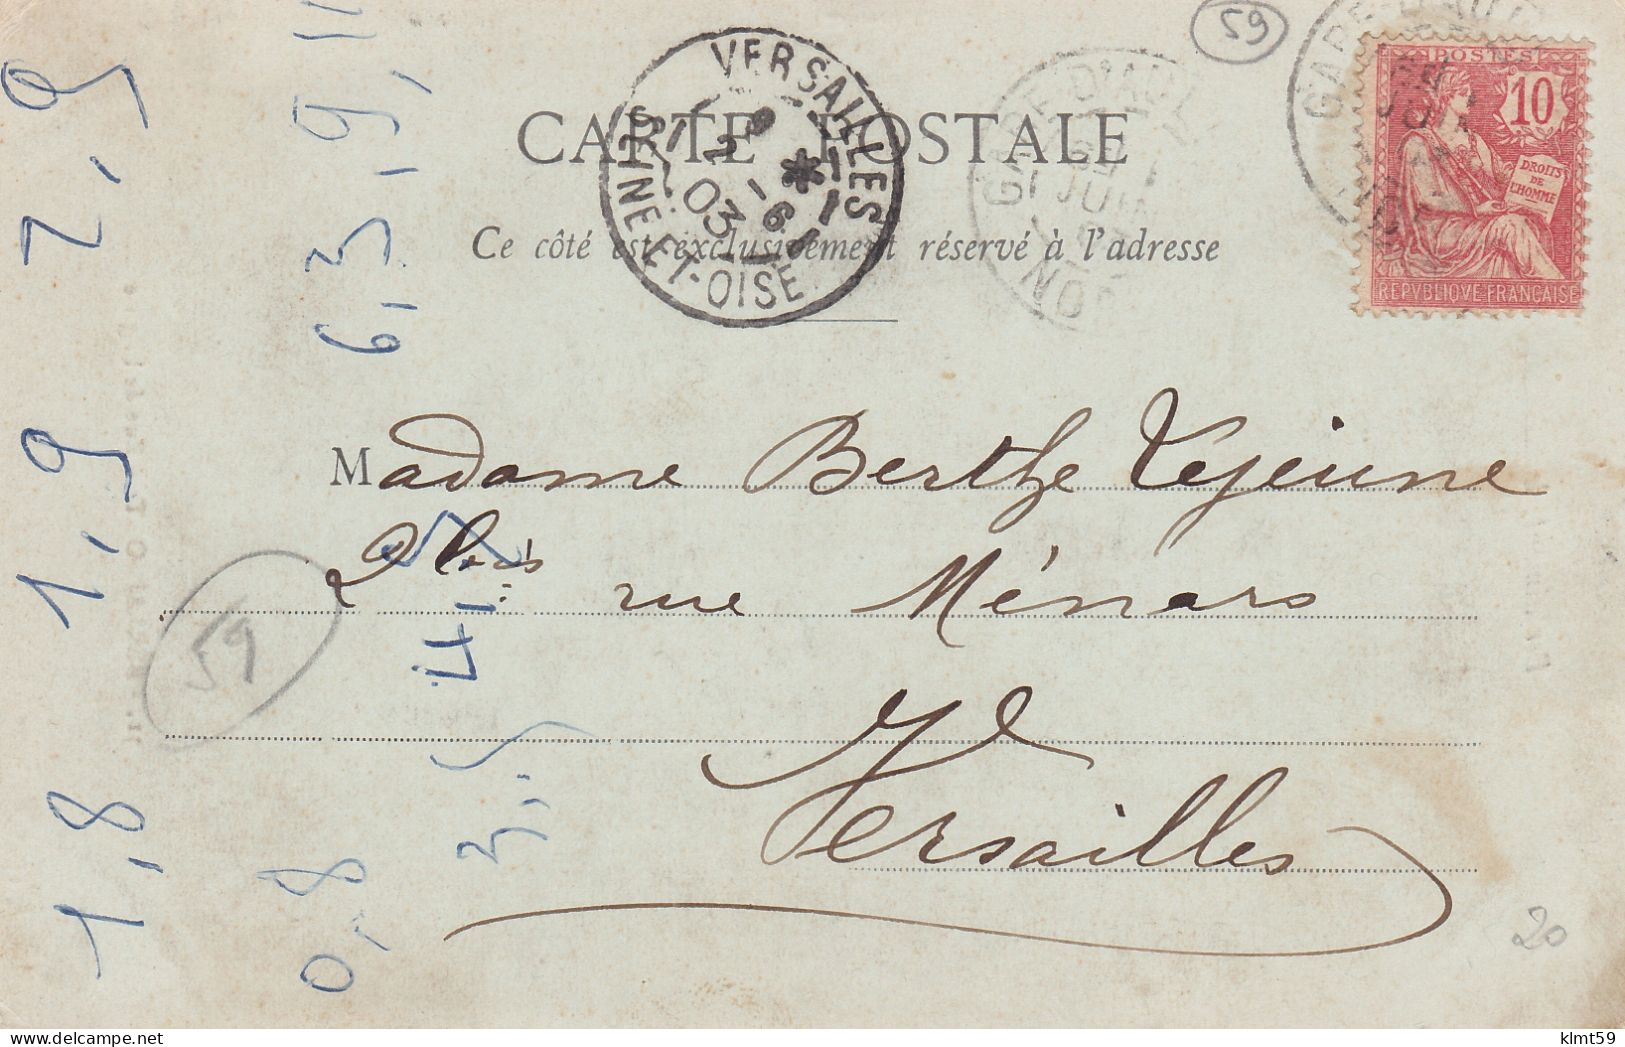 59
POSTES
10
DROITS
DE
L'HOMME
REPVBLIQVE FRANÇAISE
GARE-D'AU
VERSAILLES
SEINE-ET-OISE
2 -6
03
GARE D'AU
1 JUIN
NO
CARTE POSTALE
Ce côté est exclusivement réservé à l'adresse
Madame Berthe Lejeune
2 bis rue Ménars
Versailles
59
1,8 1,9 2,9
0,8 6,3,9,11
3,5 4,5
20
klmt59
www.delcampe.net